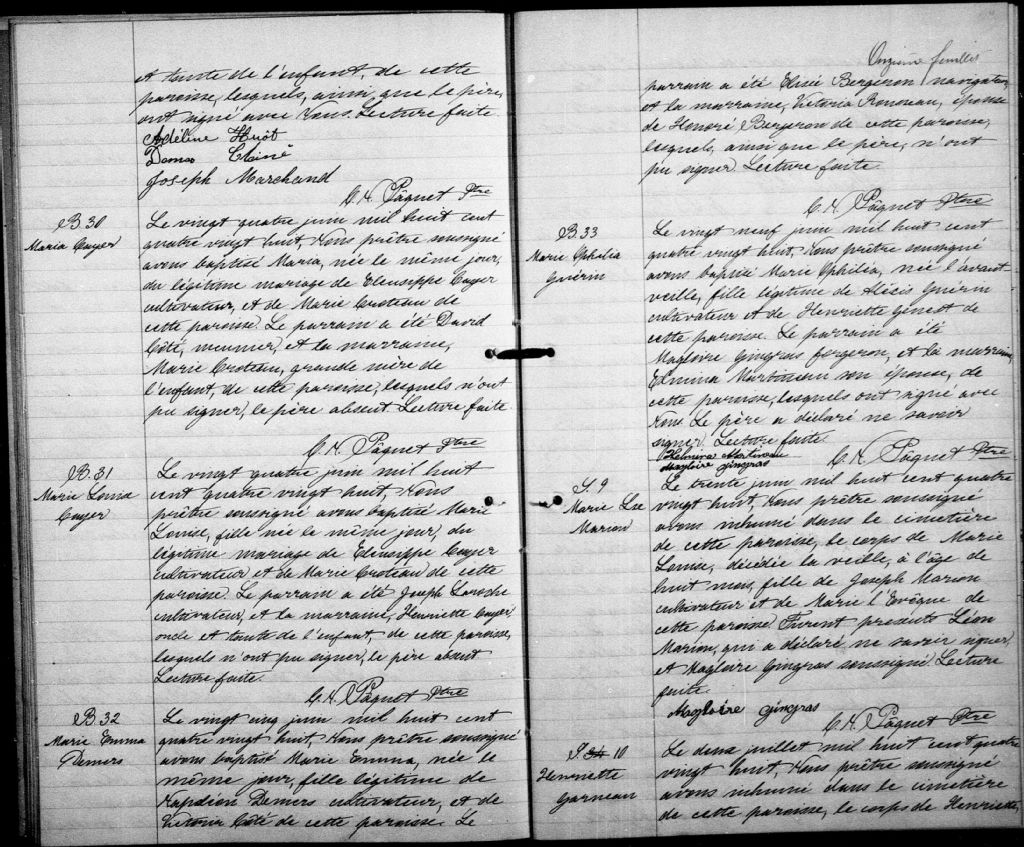 et tante de l'enfant, de cette
paroisse, lesquels, ainsi que le père,
ont signé avec Nous. Lecture faite.
Adéline Huôt
Joseph Marchand
C. H. Pâquet Ptre
B. 30
Maria Cayer
Le vingt quatre juin mil huit cent
quatre vingt huit, Nous prêtre soussigné
avons baptisé Maria, née le même jour,
du légitime mariage de Eleusippe Cayer
cultivateur, et de Marie Croteau de
cette paroisse. Le parrain a été David
Côté, meunier, et la marraine,
Marie Croteau, grande mère de
l'enfant, de cette paroisse, lesquels n'ont
pu signer, le père absent. Lecture faite.
C. H. Pâquet Ptre
B. 31
Marie Louise
Cayer
Le vingt quatre juin mil huit
cent quatre vingt huit, Nous
prêtre soussigné avons baptisé Marie
Louise, fille née le même jour, du
légitime mariage de Eleusippe Cayer
cultivateur, et de Marie Croteau de cette
paroisse. Le parrain a été Joseph Laroche
cultivateur, et la marraine, Henriette Cayer,
oncle et tante de l'enfant, de cette paroisse,
lesquels n'ont pu signer, le père absent
Lecture faite.
C. H. Pâquet Ptre
B. 32
Marie Emma
Demers
Le vingt cinq juin mil huit cent
quatre vingt huit, Nous prêtre soussigné
avons baptisé Marie Emma, née le
même jour, fille légitime de
Napoléon Demers cultivateur, et de
Victoria Côté de cette paroisse. Le
Onzième feuillet
parrain a été Elisée Bergeron navigateur
et la marraine, Victoria Rousseau, épouse
de Honoré Bergeron de cette paroisse,
lesquels, ainsi que le père, n'ont
pu signer. Lecture faite.
C. H. Pâquet Ptre
B. 33
Marie Ophélia
Guérin
Le vingt neuf juin mil huit cent
quatre vingt huit, Nous prêtre soussigné
avons baptisé Marie Ophiléa, née l'avant
veille, fille légitime de Aléxis Guérin
cultivateur et de Henriette Genest de
cette paroisse. Le parrain a été
Magloire Gingras forgeron, et la marraine,
Elmina Martineau son épouse, de
cette paroisse, lesquels ont signé avec
Nous. Le père a déclaré ne savoir
signer. Lecture faite.
Helmina Martineau
Magloire gingras
C. H. Pâquet Ptre
S. 9
Marie Lse
Marion
Le trente juin mil huit cent quatre
vingt huit, Nous prêtre soussigné
avons inhumé dans le cimetière
de cette paroisse, le corps de Marie
Louise, décédée la veille, à l'âge de
huit mois, fille de Joseph Marion
cultivateur et de Marie l'Evêque de
cette paroisse. Furent présents Léon
Marion, qui a déclaré ne savoir signer
et Magloire Gingras soussigné. Lecture
faite.
Magloire gingras
C. H. Pâquet Ptre
S. 10
Henriette
Garneau
Le deux juillet mil huit cent quatre
vingt huit, Nous prêtre soussigné
avons inhumé dans le cimetière
de cette paroisse, le corps de Henriette,